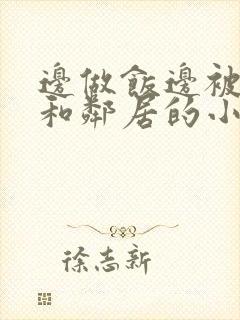 邊做飯邊被
和鄰居的小
徐志新